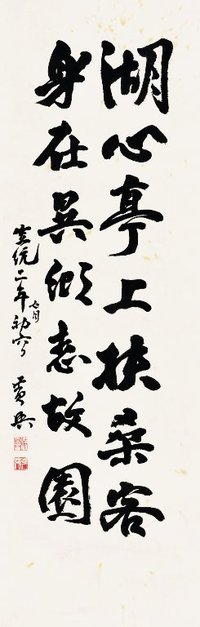 湖心亭上扶桑客
身在異鄉恋故園
宣統二年七月初六日
黄興